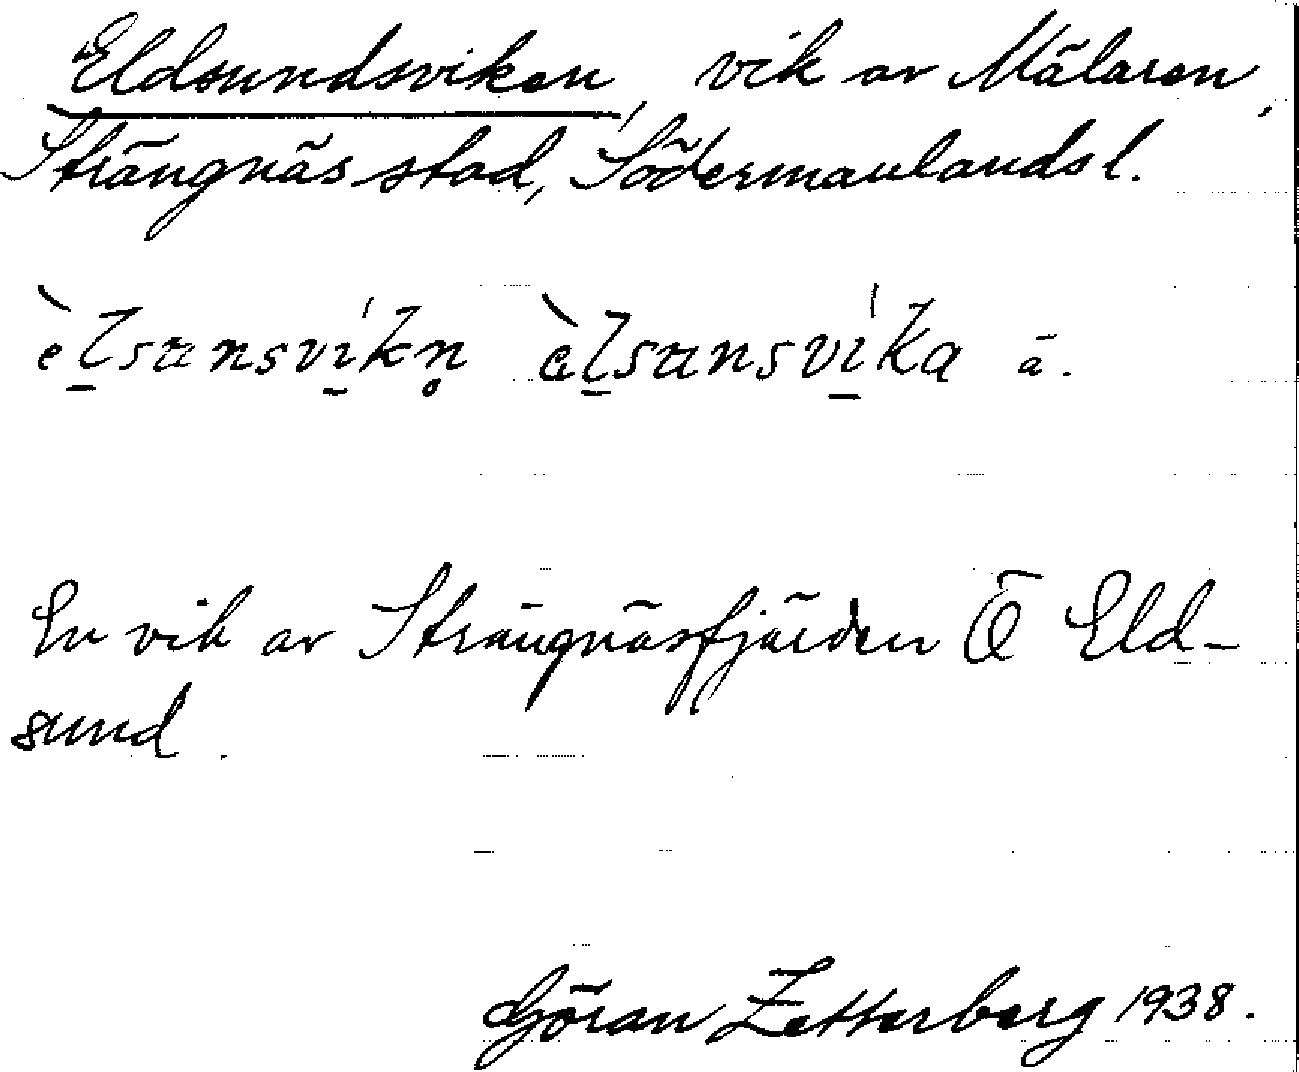 Eldsundsviken, vik av Mälaren,
Strängnäs stad, Södermanlands l.
èl̠sɑnsvi̠'kn̥ èl̠sɑnsvi̠'ka ä.
En vik av Strängnäsfjärden Ö Eld-
sund.
Göran Zetterberg 1938.